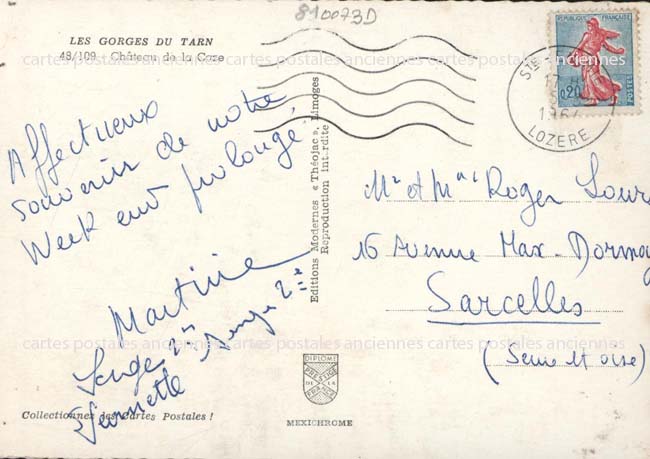 810073D
LES GORGES DU TARN
48/109 - Château de la Caze
REPUBLIQUE FRANÇAISE
0,20
POSTES
STE
17
LOZERE
Affectueux
souvenir de notre
Week end prolongé
Martine
Serge 2me
Editions Modernes « Théojac », Limoges
Reproduction interdite
Mr et Mme Roger
16 Avenue Max-Dormoy
Sarcelles
(Seine et oise)
DIPLOME
PRESTIGE
DE LA
FRANCE
MEXICHROME
Collectionnez les Cartes Postales !
cartes postales anciennes cartes postales anciennes cartes postales anciennes
cartes postales anciennes cartes postales anciennes cartes postales anciennes